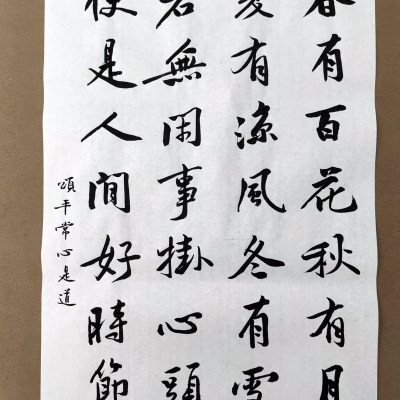 春有百花秋有月
夏有涼風冬有雪
若無閑事掛心頭
便是人間好時節
頌平常心是道